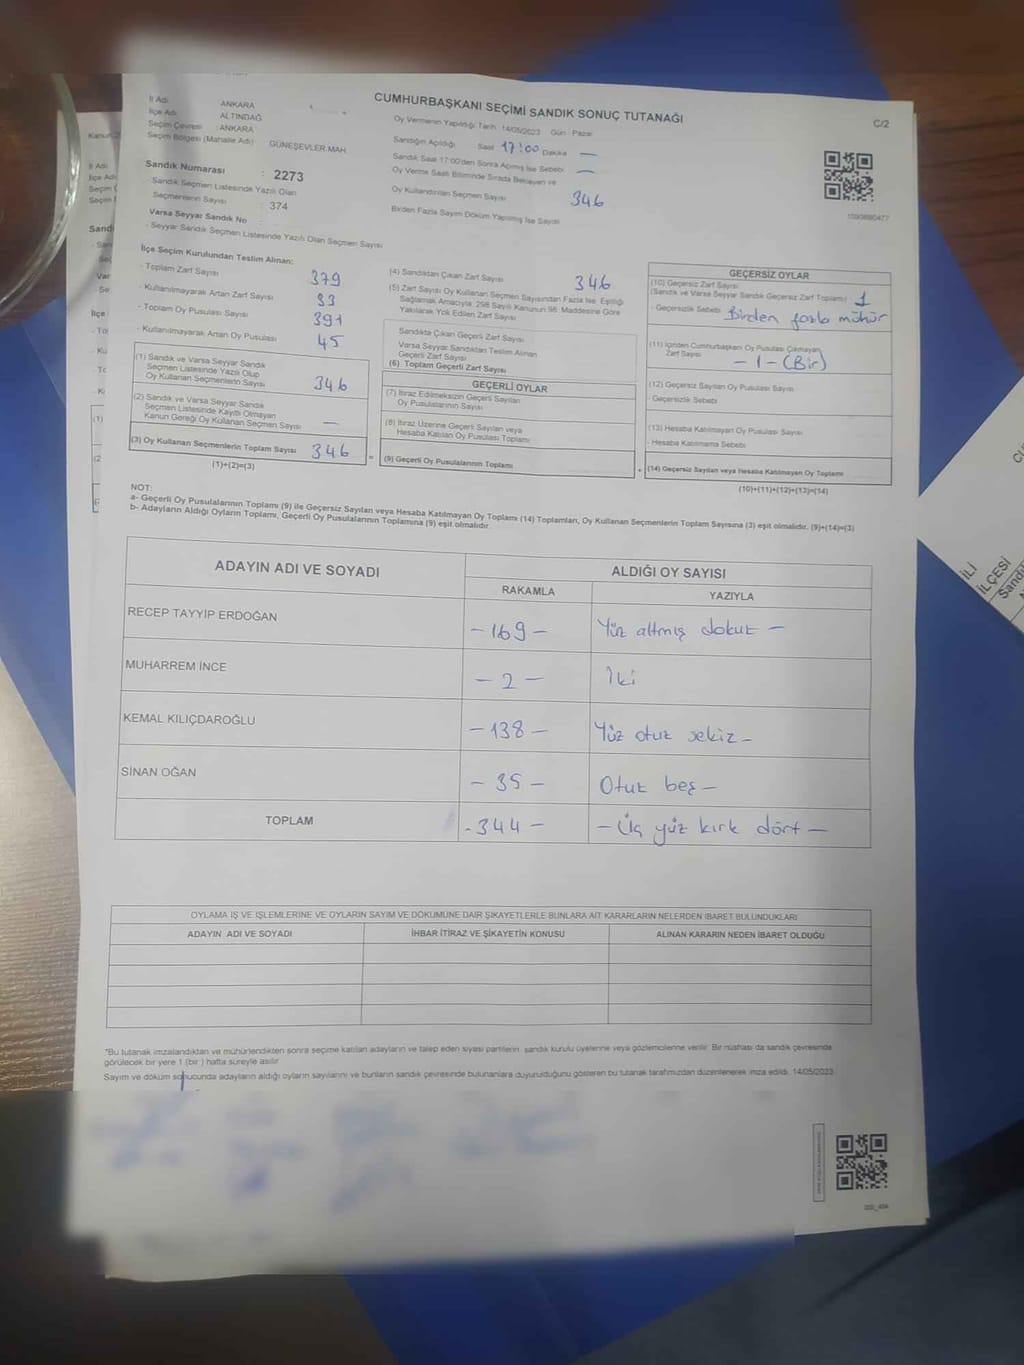 CUMHURBAŞKANI SEÇİMİ SANDIK SONUÇ TUTANAĞI
C/2
İl Adı ANKARA
İlçe Adı ALTINDAĞ
Seçim Çevresi : ANKARA
Seçim Bölgesi (Mahalle Adı) GÜNEŞEVLER MAH.
Sandık Numarası : 2273
- Sandık Seçmen Listesinde Yazılı Olan
Seçmenlerin Sayısı : 374
Varsa Seyyar Sandık No
- Seyyar Sandık Seçmen Listesinde Yazılı Olan Seçmen Sayısı
Oy Vermenin Yapıldığı Tarih 14/05/2023 Gün : Pazar
Sandığın Açıldığı Saat 17:00 Dakika —
Sandık Saat 17:00'den Sonra Açılmış İse Sebebi —
Oy Verme Saati Bitiminde Sırada Bekleyen ve
Oy Kullandırılan Seçmen Sayısı 346
Birden Fazla Sayım Döküm Yapılmış İse Sayısı
İlçe Seçim Kurulundan Teslim Alınan:
- Toplam Zarf Sayısı 379
- Kullanılmayarak Artan Zarf Sayısı 33
- Toplam Oy Pusulası Sayısı 391
- Kullanılmayarak Artan Oy Pusulası 45
(1) Sandık ve Varsa Seyyar Sandık
Seçmen Listesinde Yazılı Olup
Oy Kullanan Seçmenlerin Sayısı 346
(2) Sandık ve Varsa Seyyar Sandık
Seçmen Listesinde Kayıtlı Olmayan
Kanun Gereği Oy Kullanan Seçmen Sayısı —
(3) Oy Kullanan Seçmenlerin Toplam Sayısı 346
(1)+(2)=(3)
(4) Sandıktan Çıkan Zarf Sayısı 346
(5) Zarf Sayısı Oy Kullanan Seçmen Sayısından Fazla İse, Eşitliği
Sağlamak Amacıyla, 298 Sayılı Kanunun 98. Maddesine Göre
Yakılarak Yok Edilen Zarf Sayısı
Sandıkta Çıkan Geçerli Zarf Sayısı
Varsa Seyyar Sandıktan Teslim Alınan
Geçerli Zarf Sayısı
(6) Toplam Geçerli Zarf Sayısı
GEÇERLİ OYLAR
(7) İtiraz Edilmeksizin Geçerli Sayılan
Oy Pusulalarının Sayısı
(8) İtiraz Üzerine Geçerli Sayılan veya
Hesaba Katılan Oy Pusulası Toplamı
(9) Geçerli Oy Pusulalarının Toplamı
GEÇERSİZ OYLAR
(10) Geçersiz Zarf Sayısı
(Sandık ve Varsa Seyyar Sandık Geçersiz Zarf Toplamı) 1
- Geçersizlik Sebebi Birden fazla mühür
(11) İçinden Cumhurbaşkanı Oy Pusulası Çıkmayan
Zarf Sayısı – 1 – (Bir)
(12) Geçersiz Sayılan Oy Pusulası Sayısı
- Geçersizlik Sebebi
(13) Hesaba Katılmayan Oy Pusulası Sayısı
- Hesaba Katılmama Sebebi
(14) Geçersiz Sayılan veya Hesaba Katılmayan Oy Toplamı
(10)+(11)+(12)+(13)=(14)
NOT:
a- Geçerli Oy Pusulalarının Toplamı (9) ile Geçersiz Sayılan veya Hesaba Katılmayan Oy Toplamı (14) Toplamları, Oy Kullanan Seçmenlerin Toplam Sayısına (3) eşit olmalıdır. (9)+(14)=(3)
b- Adayların Aldığı Oyların Toplamı, Geçerli Oy Pusulalarının Toplamına (9) eşit olmalıdır.
ADAYIN ADI VE SOYADI
ALDIĞI OY SAYISI
RAKAMLA YAZIYLA
RECEP TAYYİP ERDOĞAN – 169 – Yüz altmış dokuz –
MUHARREM İNCE – 2 – İki
KEMAL KILIÇDAROĞLU – 138 – Yüz otuz sekiz –
SİNAN OĞAN – 35 – Otuz beş –
TOPLAM – 344 – – Üç yüz kırk dört –
OYLAMA İŞ VE İŞLEMLERİNE VE OYLARIN SAYIM VE DÖKÜMÜNE DAİR ŞİKAYETLERLE BUNLARA AİT KARARLARIN NELERDEN İBARET BULUNDUKLARI
ADAYIN ADI VE SOYADI İHBAR İTİRAZ VE ŞİKAYETİN KONUSU ALINAN KARARIN NEDEN İBARET OLDUĞU
*Bu tutanak imzalandıktan ve mühürlendikten sonra seçime katılan adayların ve talep eden siyasi partilerin sandık kurulu üyelerine veya gözlemcilerine verilir. Bir nüshası da sandık çevresinde
görülecek bir yere 1 (bir) hafta süreyle asılır
Sayım ve döküm sonucunda adayların aldığı oyların sayılarını ve bunların sandık çevresinde bulunanlara duyurulduğunu gösteren bu tutanak tarafımızdan düzenlenerek imza edildi. 14/05/2023
İLİ
İLÇESİ